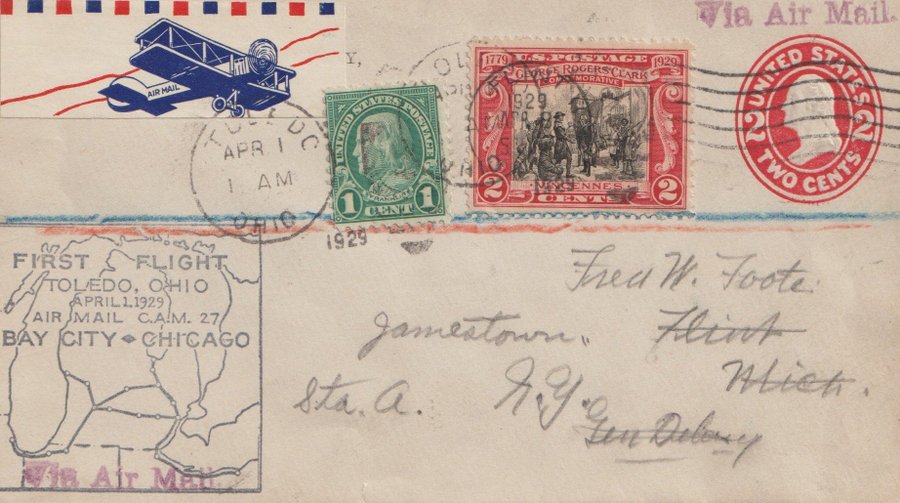 Via Air Mail.
AIR MAIL
TOLEDO
APR 1
1 AM
OHIO
1929
UNITED STATES POSTAGE
FRANKLIN
1 CENT 1
U.S. POSTAGE
1779 1929
GEORGE ROGERS CLARK
COMMEMORATIVE
1929
VINCENNES
2 CENTS 2
UNITED STATES
2 2
TWO CENTS
FIRST FLIGHT
TOLEDO, OHIO
APRIL 1, 1929
AIR MAIL C.A.M. 27
BAY CITY CHICAGO
Via Air Mail.
Fred W. Foote.
Jamestown, Flint
Sta. A. N.Y. Mich.
Gen Delivery